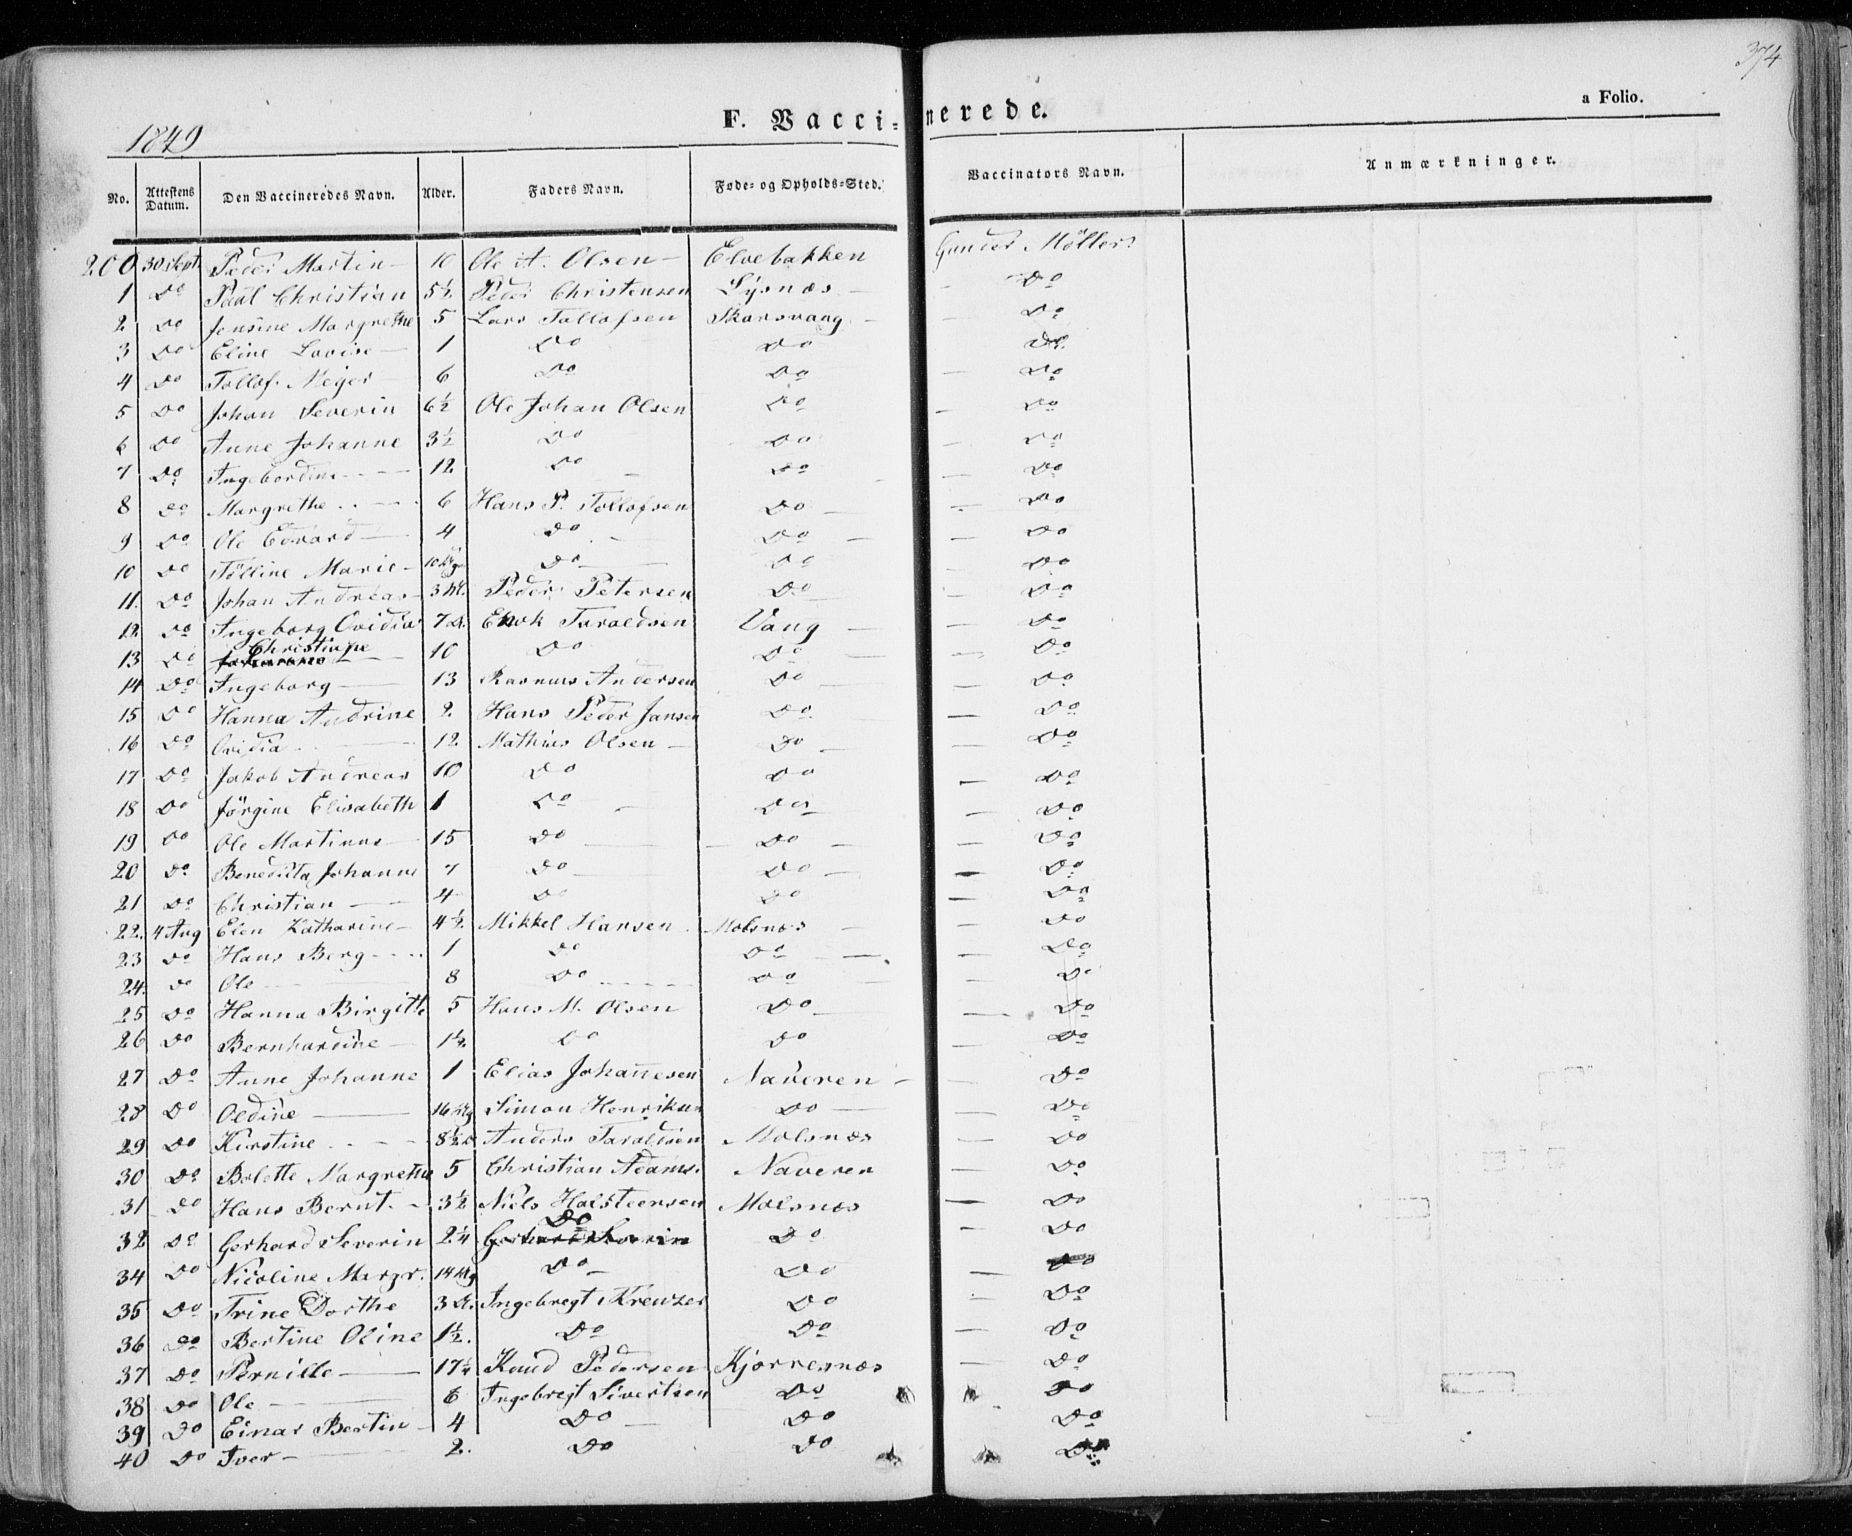 374
1849
F. Vaccinerede.
a Folio.
No. Attestens Datum. Den Vaccineredes Navn. Alder. Faders Navn. Føde- og Opholds-Sted. Vaccinators Navn. Anmærkninger.
200 30 Sept. Peder Martin 10 Ole A. Olsen Elvebakken Gunder Møller
1 Do Paul Christian 5½ Peder Christensen Lysnæs Do
2 Do Jensine Margrethe 5 Lars Tollofsen Skarsvaag Do
3 Do Eline Lovise 1 Do Do Do
4 Do Tollof Meyer 6 Do Do Do
5 Do Johan Severin 6½ Ole Johan Olsen Do Do
6 Do Anne Johanne 3½ Do Do Do
7 Do Ingebordine 12 Do Do Do
8 Do Margrethe 6 Hans P. Tollofsen Do Do
9 Do Ole Edvard 4 Do Do Do
10 Do Tølline Marie 10 Do Do Do
11. Do Johan Andreas 3 Peder Petersen Do Do
12. Do Ingeborg Ovidia 7 Erik Taraldsen Vang Do
13 Do Christine 10 Do Do Do
14 Do Ingeborg 13 Rasmus Andersen Do Do
15 Do Hanna Andrine 2 Hans Peder Jansen Do Do
16 Do Ovidia 12 Mathias Olsen Do Do
17 Do Jakob Andreas 10 Do Do Do
18 Do Jørgine Elisabeth 1 Do Do Do
19 Do Ole Martinus 15 Do Do Do
20 Do Benedicta Johanne 7 Do Do Do
21 Do Christian 4 Do Do Do
22. 4 Aug Elen Katharine 4½ Mikkel Hansen Molsnæs Do
23 Do Hans Berg 1 Do Do Do
24. Do Ole 8 Do Do Do
25 Do Hanna Birgitte 5 Hans M. Olsen Do Do
26 Do Bernhardine 1½ Do Do Do
27 Do Anne Johanne 1 Elias Johannesen Naveren Do
28 Do Oldine 16 Simon Henriksen Do Do
29 Do Kirstine 8½ Anders Taraldsen Molsnæs Do
30 Do Bolette Margrethe 5 Christian Adams. Naveren Do
31 Do Hans Bernt 3½ Niels Halsteensen Molsnæs Do
32 Do Gerhard Severin 2¼ Gerhard Severin Do Do Do
34 Do Nicoline Margr. 14 Do Do Do
35 Do Trine Dorthe 3 Ingebregt Kreutzer Do Do
36 Do Bertine Oline 1½. Do Do Do
37 Do Pernille 17¼ Knud Pedersen Kjorresnæs Do
38 Do Ole 6 Ingebregt Sivertsen Do Do
39 Do Einar Bertin 4 Do Do Do
40 Do Iver 2. Do Do Do